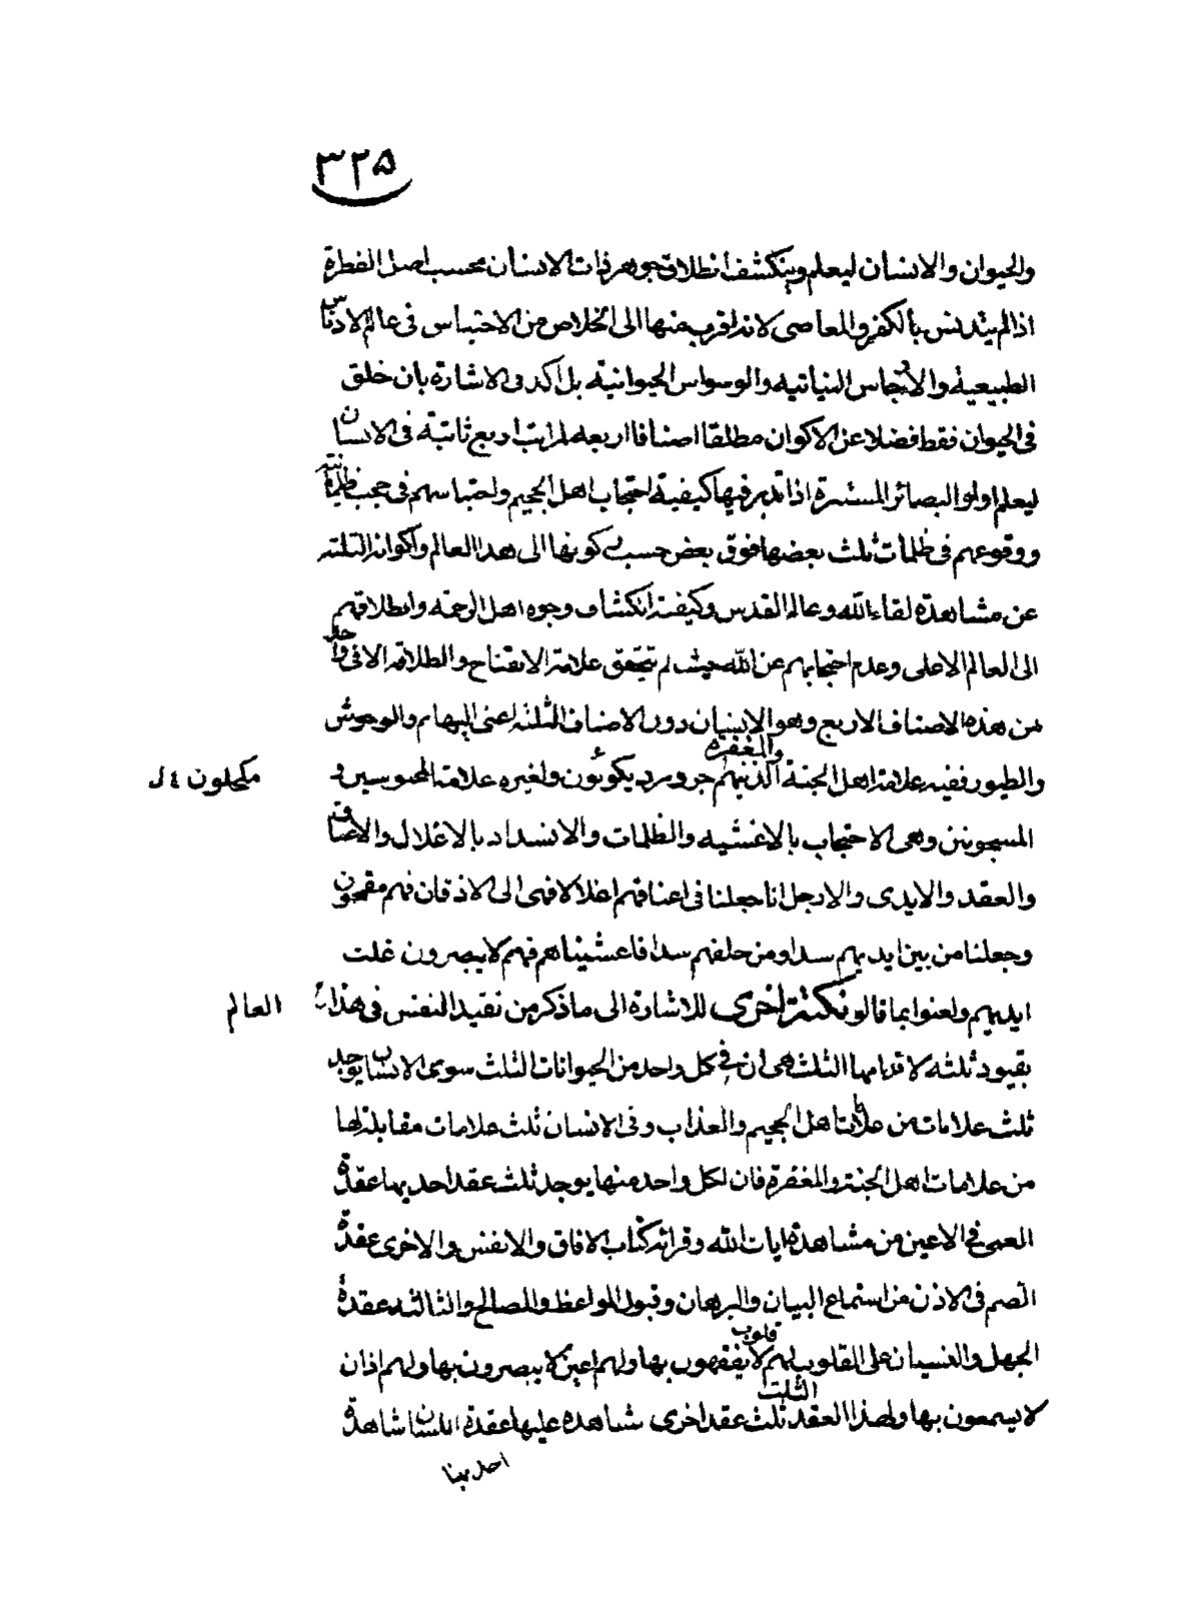 ٣٢٥
والحيوان والانسان ليعلم وينكشف انطلاق جوهر ذات الانسان بحسب اصل الفطرة
اذا لم يتدنس بالكفر والمعاصى لانه اقرب منها الى الخلاص من الاحتباس فى عالم الادناس
الطبيعية والارجاس النباتيه والوسواس الحيوانية بل اكد فى الاشارة بان خلق
فى الحيوان فقط فضلا عن الاكوان مطلقا اصنافا اربعه لمراتب اربع ثابتة فى الانسان
ليعلم اولو البصائر المستنيرة اذا تدبر فيها كيفية احتجاب اهل الجحيم واحتباسهم فى حجب ظلمانيه
ووقوعهم فى ظلمات ثلث بعضها فوق بعض حسب كونها الى هذا العالم واكوانه الثلثه
عن مشاهدة لقاء الله وعالم القدس وكيفية انكشاف وجوه اهل الرحمة وانطلاقهم
الى العالم الاعلى وعدم احتجابهم عن الله حيث لم يتحقق علامة الانفتاح والطلاقه الا فى واحد
من هذه الاصناف الاربع وهو الانسان دون الاصناف الثلثه اعنى البهائم والوحوش
والطيور ففيه علامة اهل الجنة والمغفره الذين هم جرد مرد يكونون ولغيره علامة المحبوسين و
مكحلون ٤ ل
المسجونين وهى الاحتجاب بالاغشيه والظلمات والانسداد بالاغلال والاعناق
والعقد والايدى والارجل انا جعلنا فى اعناقهم اغلالا فهى الى الاذقان فهم مقمحون
وجعلنا من بين ايديهم سدا ومن خلفهم سدا فاغشيناهم فهم لا يبصرون غلت
ايديهم ولعنوا بما قالو نكتة اخرى للاشارة الى ما ذكر من تقيد النفس فى هذا
العالم
بقيود ثلثه لاقدامها الثلث هى ان فى كل واحد من الحيوانات الثلث سوى الانسان يوجد
ثلث علامات من علامات اهل الجحيم والعذاب وفى الانسان ثلث علامات مقابلة لها
من علامات اهل الجنة والمغفرة فان لكل واحد منها يوجد ثلث عقد احديها عقدة
العمى فى الاعين من مشاهدة ايات الله وقرائة كتاب الافاق والانفس والاخرى عقدة
الصم فى الاذن من استماع البيان والبرهان وقبول المواعظ والمصالح والثالثه عقدة
الجهل والنسيان على القلوب لهم قلوب لا يفقهون بها ولهم اعين لا يبصرون بها ولهم اذان
لا يسمعون بها ولهذا العقد الثلث ثلث عقد اخرى شاهده عليها عقدة اللسان شاهدة
احديها